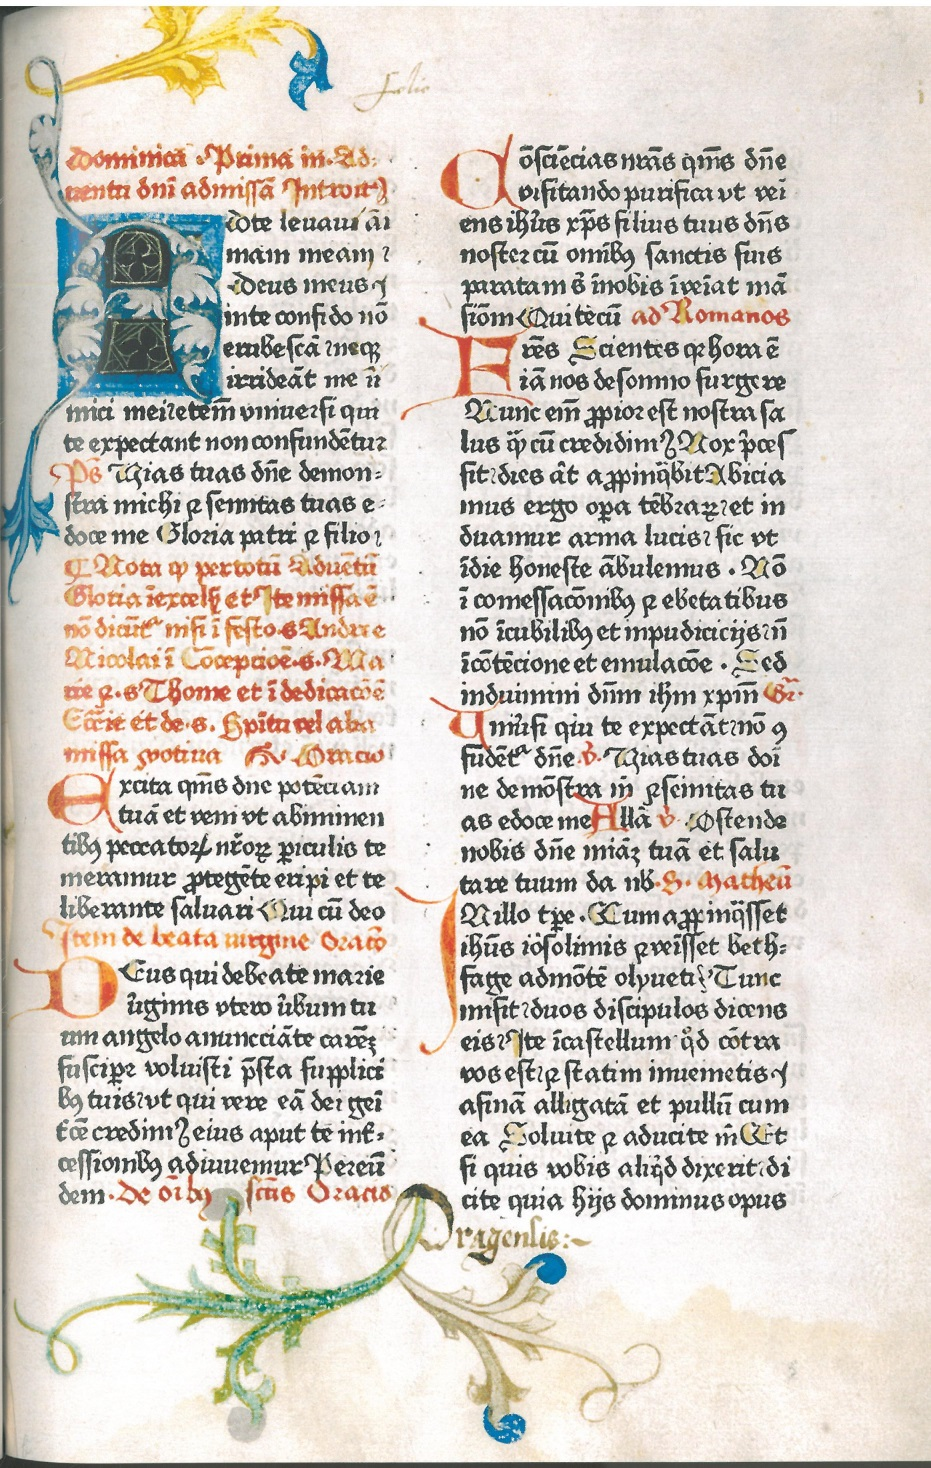 folio
Dominica Prima in Ad-
uentu dnī ad missā Introitꝰ
Ad te leuaui āi
mam meam ⁊
Deus meus ⁊
in te confido nō
erubescā ⁊ neqꝫ
irrideāt me īi
mici mei ⁊ etem̄ vniuersi qui
te expectant non confundētur
Ps Vias tuas dn̄e demon-
stra michi ⁊ semitas tuas e-
doce me Gloria patri ⁊ filio
Nota ꝙ per totū Aduētū
Gloria ī excelꝭ et Ite missa ē
nō dicūtᵘʳ nisi ī festo s Andree
Nicolai ī Cōcepcioē s. Ma
rie ⁊ s Thome et ī dedicacōē
Eccīe et de s. Spiritu vel alia
missa votiua Oracio
Excita qm̄s dn̄e potēciam
tuā et veni vt ab iminen
tibꝰ peccatoꝝ nr̄oꝝ ꝑiculis te
meramur ꝓtegēte eripi et te
liberante saluari Qui cū deo
Item de beata uirgine Oracō
Deus qui de beate marie
v̄ginis vtero v̄bum tu
um angelo anuncciāte carēꝫ
suscipe voluisti p̄sta supplici
bꝰ tuis ⁊ vt qui vere eā dei gei
t̄cē credimꝰ eius aput te int̄-
cessionibꝰ adiuuemur Per eū
dem. De oībꝰ sctis Oracio
Cōsciēcias nr̄as qm̄s dn̄e
visitando purifica vt vei
ens ihūs xp̄s filius tuus dn̄s
noster cū omībꝰ sanctis suis
paratam s̄ ī nobis īveiat mā
siōm Qui tecū ad Romanos
Fr̄es Scientes qꝛ hora ē
iā nos de somno surgere
Nunc em̄ ꝓpior est nostra sa
lus qͣ cū credidimꝰ Nox p̄ces
sit ⁊ dies āt appinq̄bit Abicia
mus ergo opa tēbraꝝ ⁊ et in
duamur arma lucis ⁊ sic vt
ī die honeste ābulemus . Nō
ī comessacōnibꝰ ⁊ ebetatibus
nō ī cubilibꝰ et inpudicicijs ⁊ n̄
ī cōtēcione et emulacōe . Sed
induimini dn̄m ihm̄ xp̄m Gr̄.
Vniūsi qui te expectāt ⁊ nō ꝯ
fūdētᵘʳ dn̄e v̄. Vias tuas doī
ne demōstra m̄ ⁊ semitas tu
as edoce me Allā v̄ Ostende
nobis dn̄e miāꝫ tuā et salu
tare tuum da nb̄. S. Matheū
In illo tp̄e . Cum appinq̄sset
ihūs iōsolimis ⁊ veīsset beth-
fage ad mōtē olyueti ⁊ Tunc
misit ⁊ duos discipulos dicens
eis ⁊ Ite ī castellum q̄d cōtra
vos est ⁊ ⁊ statim inuenietis ⁊
asinā alligatā et pullū cum
ea Soluite ⁊ aducite m̄ Et
si quis vobis aliq̄d dixerit ⁊ di
cite quia hijs dominus opus
Pragensis:~